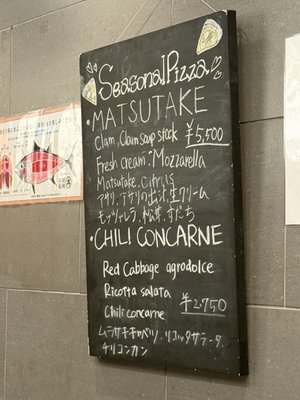 Seasonal Pizza
MATSUTAKE
Clam, Clam soup stock ¥5,500
Fresh cream, Mozzarella
Matsutake, Citrus
アサリ、アサリの出汁、生クリーム
モッツァレラ、松茸、すだち
CHILI CONCARNE
Red Cabbage agrodolce
Ricotta salata ¥2,750
Chili concarne
ムラサキキャベツ、リコッタサラータ、
チリコンカン